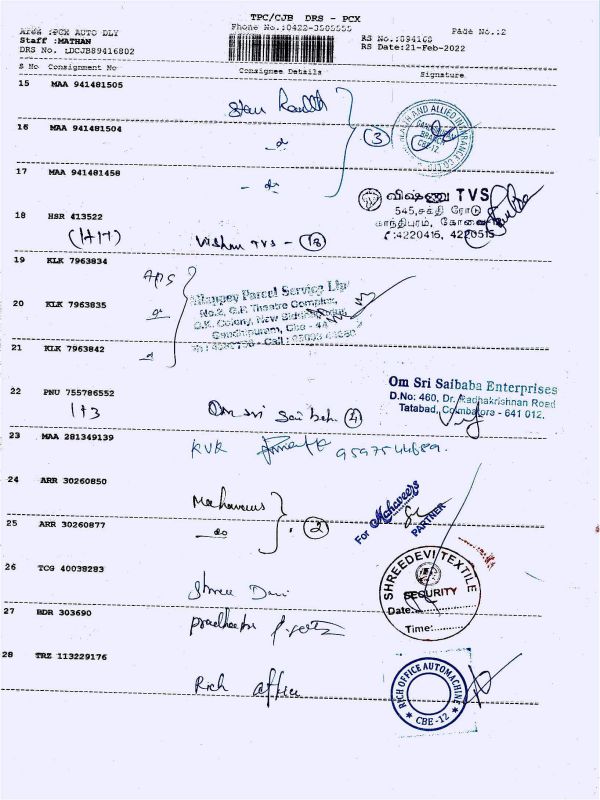 TPC/CJB DRS - PCX
Area :PCX AUTO DLY
Phone No.:0422-3505555
Page No.:2
Staff :MATHAN
RS No.:894168
DRS No. :DCJB89416802
RS Date:21-Feb-2022
S No Consignment No
Consignee Details
Signature
15 MAA 941481505
16 MAA 941481504
3
HEALTH AND ALLIED INSURANCE CO
BRANCH
CBE-12
17 MAA 941481458
- do -
விஷ்ணு TVS
545,சக்தி ரோடு
காந்திபுரம், கோவை
✆:4220416, 4220515
18 HSR 413522
(1+17)
Vishnu TVS - 18
19 KLK 7963834
APS
Allappey Parcel Service Ltd
No.2, G.P. Theatre Complex,
G.K. Colony, New Siddhapudur
Gandhipuram, Cbe - 44
20 KLK 7963835
21 KLK 7963842
22 PNU 755786552
1+3
Om Sri Sai bab 4
Om Sri Saibaba Enterprises
D.No: 460, Dr. Radhakrishnan Road
Tatabad, Coimbatore - 641 012.
23 MAA 281349139
KVR
9597544689.
24 ARR 30260850
Mahaveers
For Mahaveers
PARTNER
25 ARR 30260877
do
2
26 TCG 40038283
Shree Devi
SHREEDEVI TEXTILE
SECURITY
Date:
Time:
27 BDR 303690
28 TRZ 113229176
Rich office
RICH OFFICE AUTOMACHINE
CBE-12